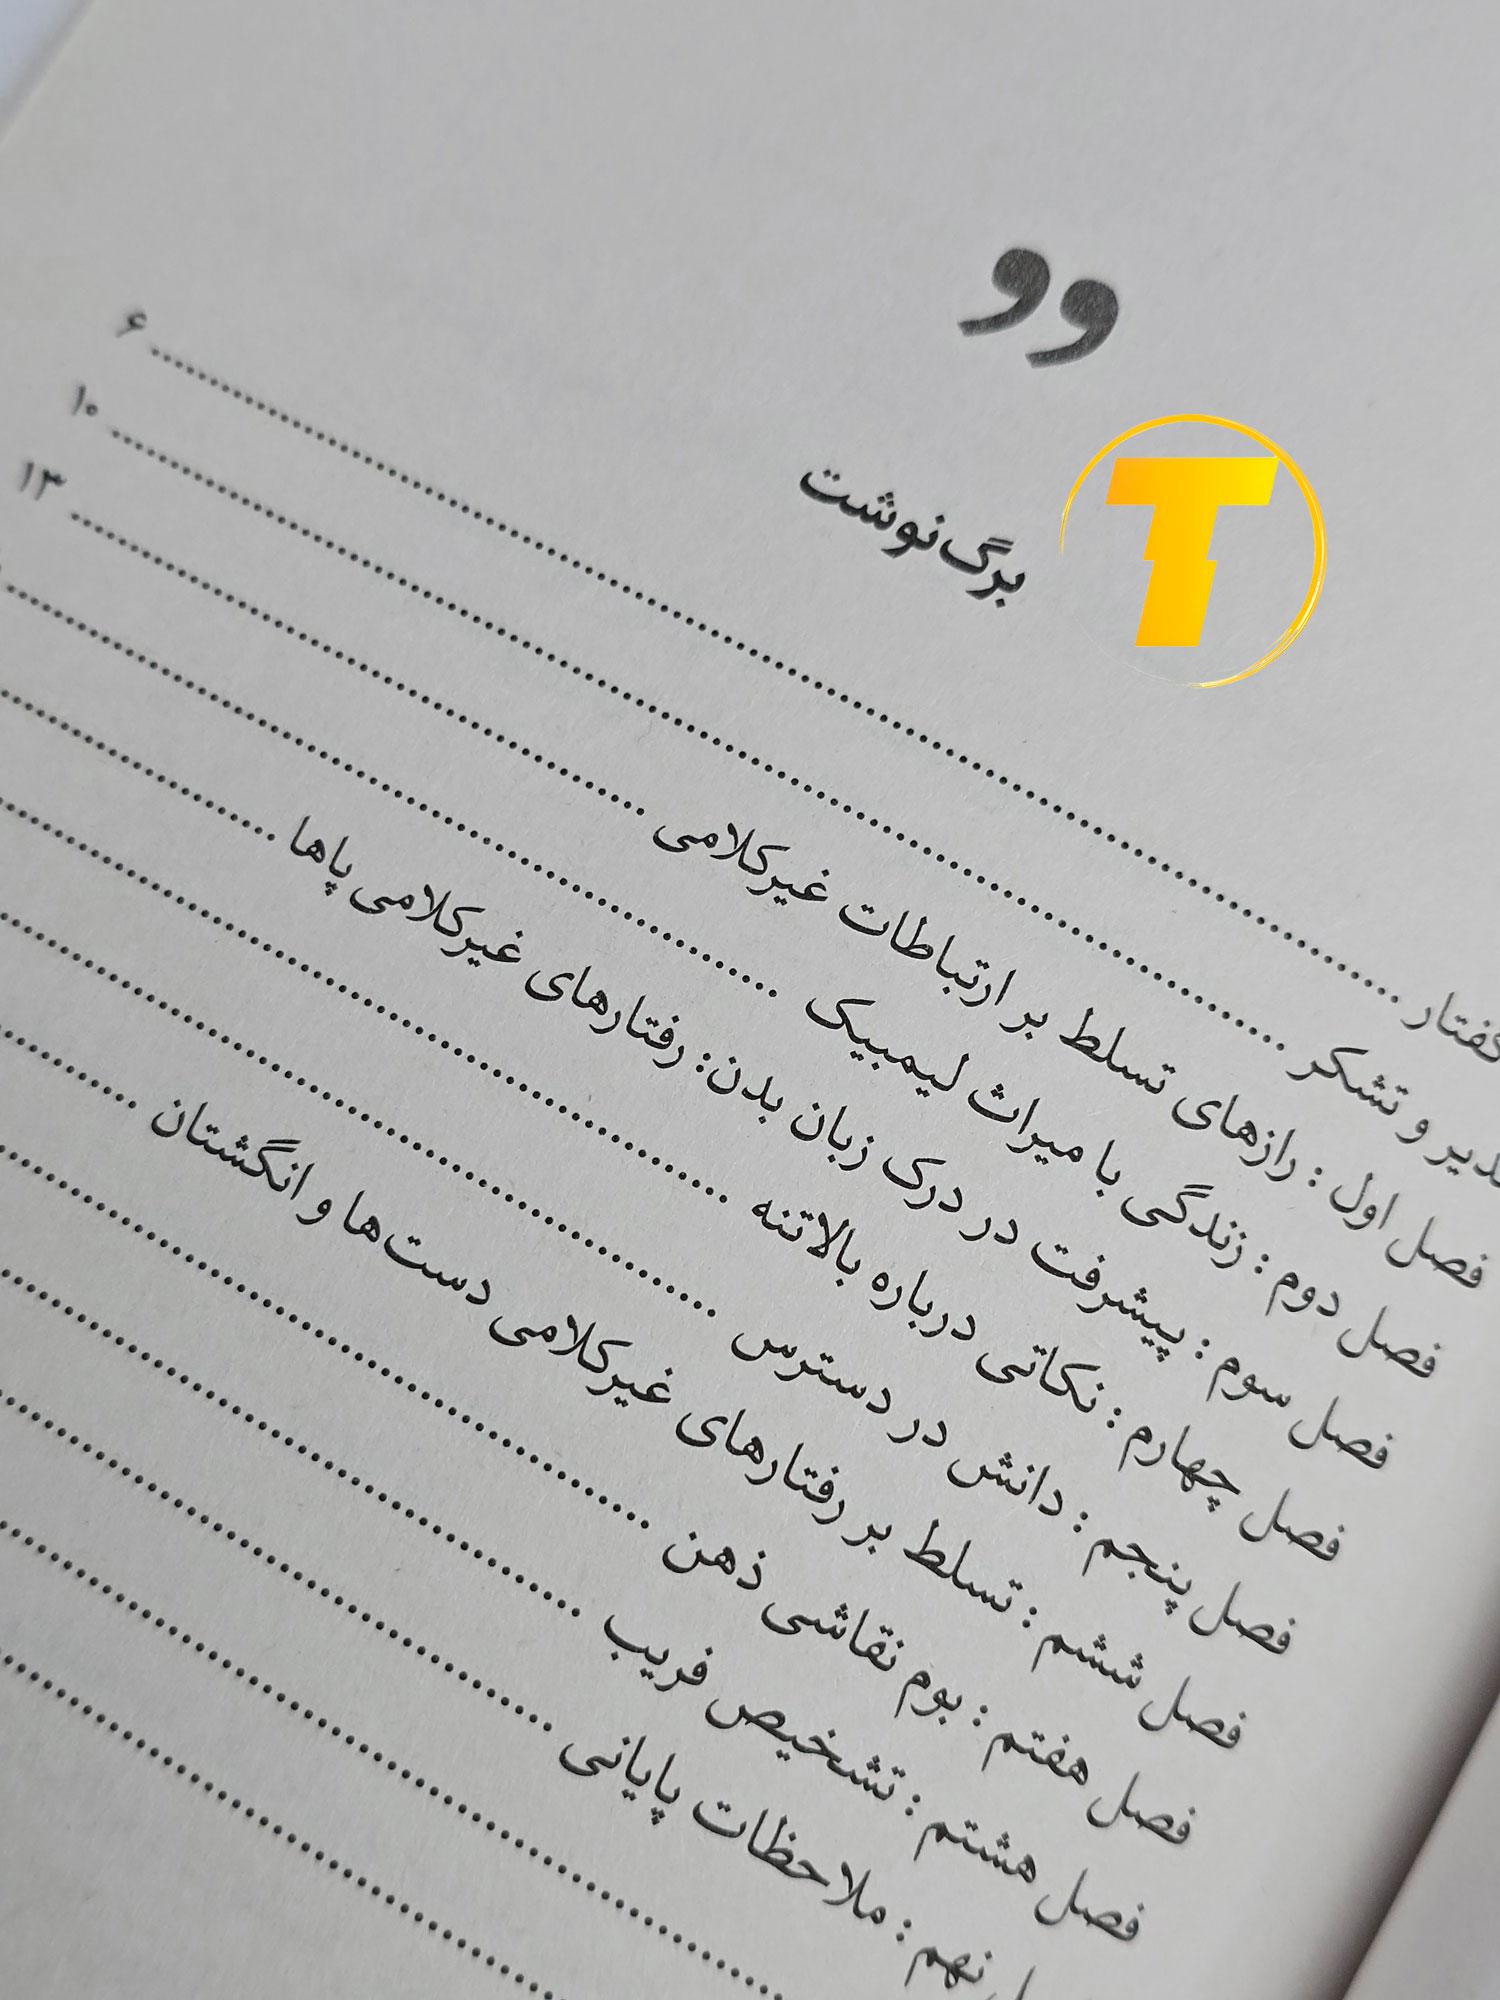 برگ‌نوشت
T
گفتار ........ ۶
و تشکر ........ ۱۰
فصل اول : رازهای تسلط بر ارتباطات غیرکلامی ........ ۱۳
فصل دوم : زندگی با میراث لیمبیک ........
فصل سوم : پیشرفت در درک زبان بدن: رفتارهای غیرکلامی پاها ........
فصل چهارم : نکاتی درباره بالاتنه ........
فصل پنجم : دانش در دسترس ........
فصل ششم : تسلط بر رفتارهای غیرکلامی دست‌ها و انگشتان ........
فصل هفتم : بوم نقاشی ذهن ........
فصل هشتم : تشخیص فریب ........
نهم : ملاحظات پایانی ........